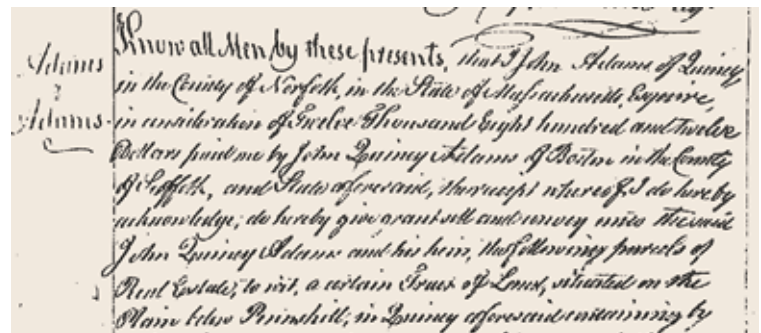 Know all Men by these presents, that I John Adams of Quincy
Adams
in the County of Norfolk, in the State of Massachusetts, Esquire,
&
Adams
in consideration of Twelve Thousand Eight hundred and twelve
Dollars paid me by John Quincy Adams of Boston in the County
of Suffolk, and State aforesaid, the receipt whereof I do hereby
acknowledge; do hereby give grant sell and convey unto the said
John Quincy Adams and his heirs, the following parcels of
Real Estate; to wit, a certain Tract of Land, situated on the
Plain below Pennshill; in Quincy aforesaid containing by